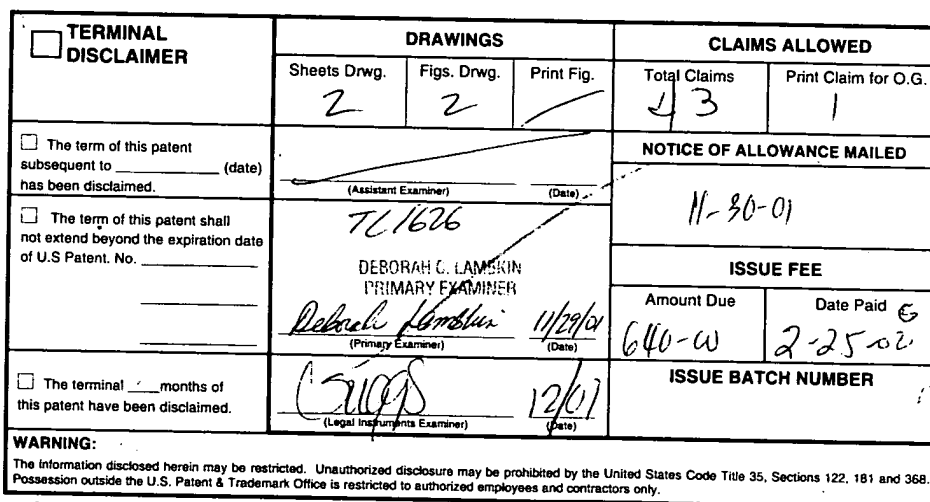 TERMINAL
DISCLAIMER
DRAWINGS
CLAIMS ALLOWED
Sheets Drwg.
Figs. Drwg.
Print Fig.
Total Claims
Print Claim for O.G.
2
2
3
1
The term of this patent
subsequent to (date)
has been disclaimed.
(Assistant Examiner)
(Date)
NOTICE OF ALLOWANCE MAILED
11-30-01
The term of this patent shall
not extend beyond the expiration date
of U.S Patent. No.
TC1626
DEBORAH C. LAMBKIN
PRIMARY EXAMINER
Deborah Lambkin 11/29/01
(Primary Examiner)
(Date)
ISSUE FEE
Amount Due
Date Paid
640-00
2-25-02
The terminal months of
this patent have been disclaimed.
12/01
(Legal Instruments Examiner)
(Date)
ISSUE BATCH NUMBER
WARNING:
The information disclosed herein may be restricted. Unauthorized disclosure may be prohibited by the United States Code Title 35, Sections 122, 181 and 368.
Possession outside the U.S. Patent & Trademark Office is restricted to authorized employees and contractors only.